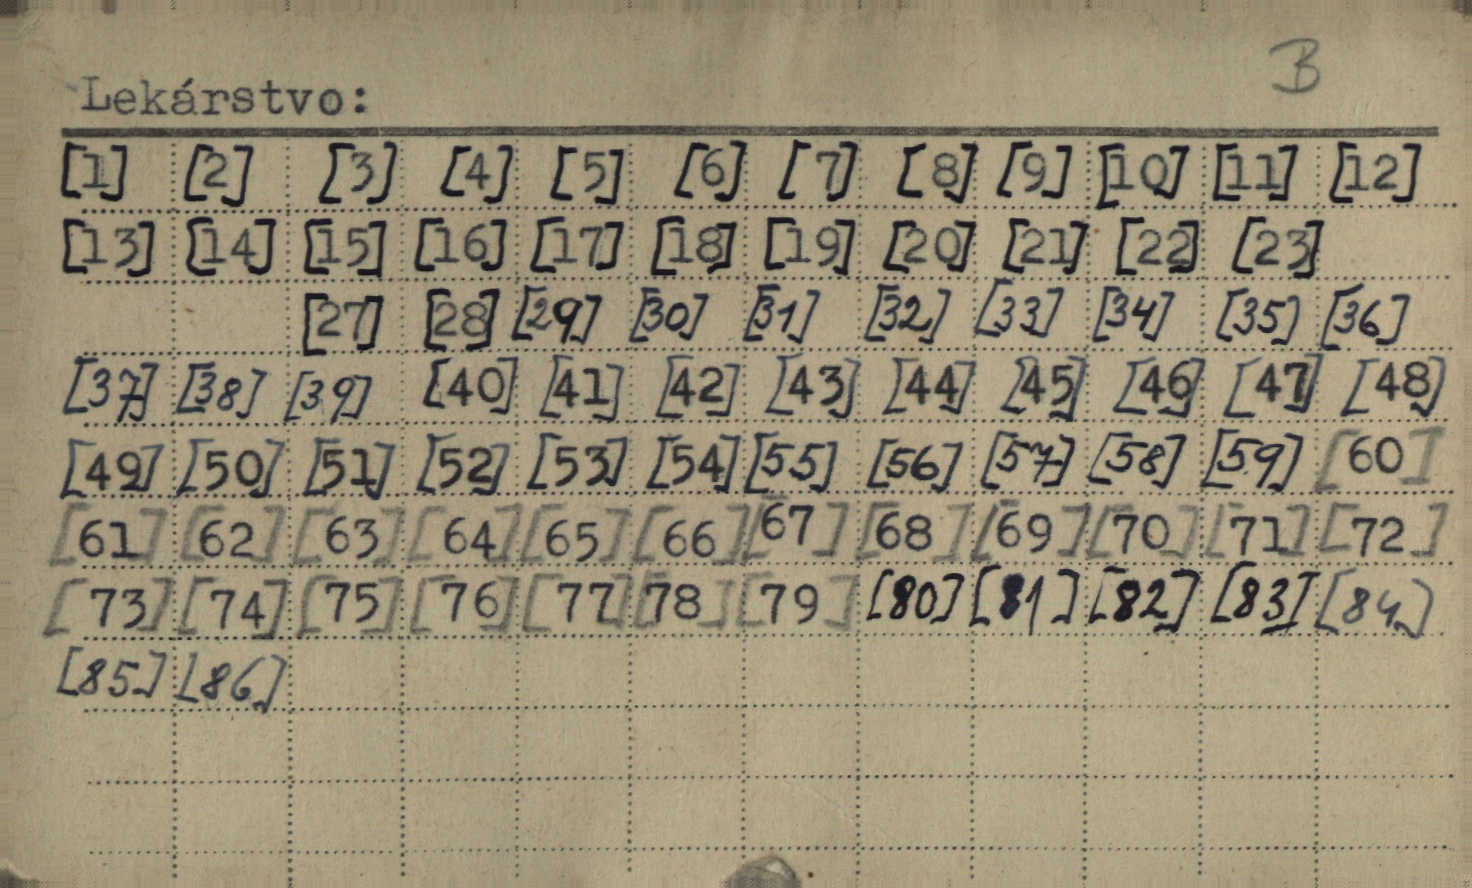 B
Lekárstvo:
[1] [2] [3] [4] [5] [6] [7] [8] [9] [10] [11] [12]
[13] [14] [15] [16] [17] [18] [19] [20] [21] [22] [23]
[27] [28] [29] [30] [31] [32] [33] [34] [35] [36]
[37] [38] [39] [40] [41] [42] [43] [44] [45] [46] [47] [48]
[49] [50] [51] [52] [53] [54] [55] [56] [57] [58] [59] [60]
[61] [62] [63] [64] [65] [66] [67] [68] [69] [70] [71] [72]
[73] [74] [75] [76] [77] [78] [79] [80] [81] [82] [83] [84]
[85] [86]